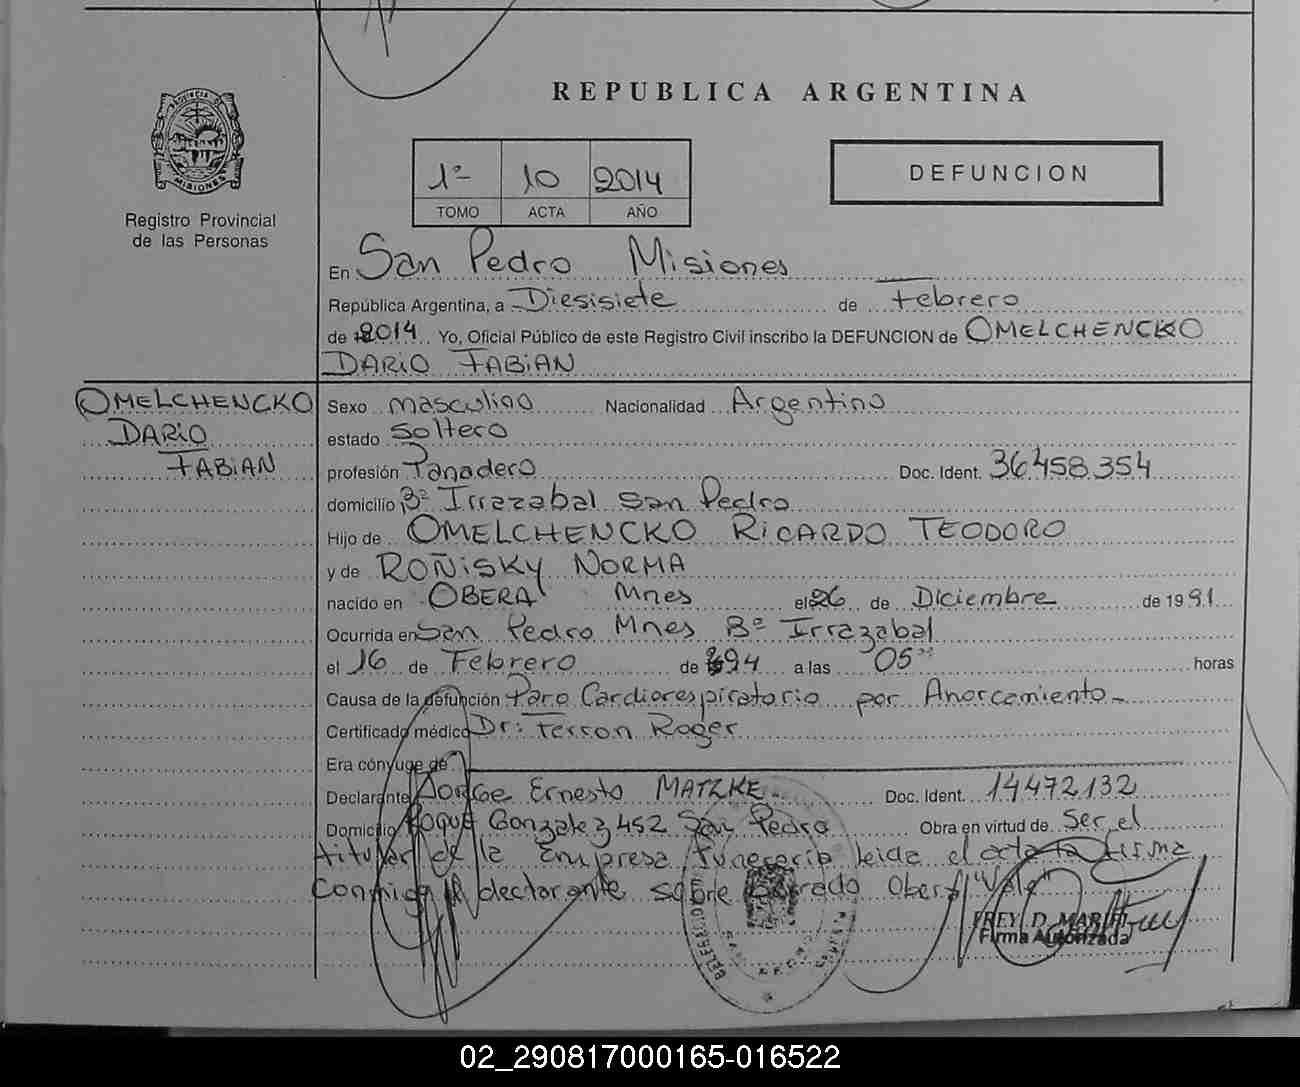 REPUBLICA ARGENTINA
PROVINCIA D
MISIONES
Registro Provincial
de las Personas
1º 10 2014
TOMO ACTA AÑO
DEFUNCION
En San Pedro Misiones
República Argentina, a Diesisiete de Febrero
de 2014 Yo, Oficial Público de este Registro Civil inscribo la DEFUNCION de OMELCHENCKO
DARIO FABIAN
OMELCHENCKO
DARIO
FABIAN
Sexo masculino Nacionalidad Argentino
estado Soltero
profesión Panadero Doc. Ident. 36458.354
domicilio Bº Irrazabal San Pedro
Hijo de OMELCHENCKO RICARDO TEODORO
y de ROÑISKY NORMA
nacido en OBERA Mnes el 26 de Diciembre de 1991
Ocurrida en San Pedro Mnes Bº Irrazabal
el 16 de Febrero de a las 05 horas
Causa de la defunción Paro Cardiorespiratorio por Ahorcamiento-
Certificado médico Dr: Ferron Roger
Era cónyuge de
Declarante Jorge Ernesto MATZKE Doc. Ident. 14472132
Domicilio Roque Gonzalez 452 San Pedro Obra en virtud de Ser el
titular de la Empresa funeraria leida el acta la firma
Conmigo el declarante sobre Borrado Obera "Vale"
FREY D. MARIEL
Firma Autorizada
SAN PEDRO
02_290817000165-016522